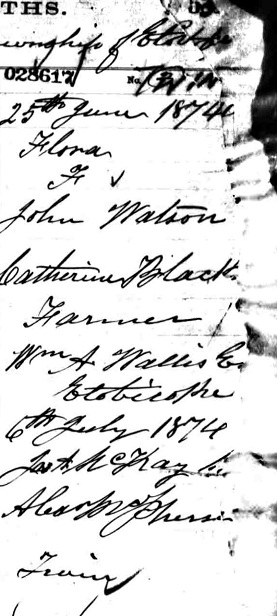 THS.
ownship of Etobi
028617 No.
25th June 1874
Flora
F ✓
John Watson
Catherine Black
Farmer
Wm A Wallis E
Etobicoke
6th July 1874
Jas A McKay
Twin